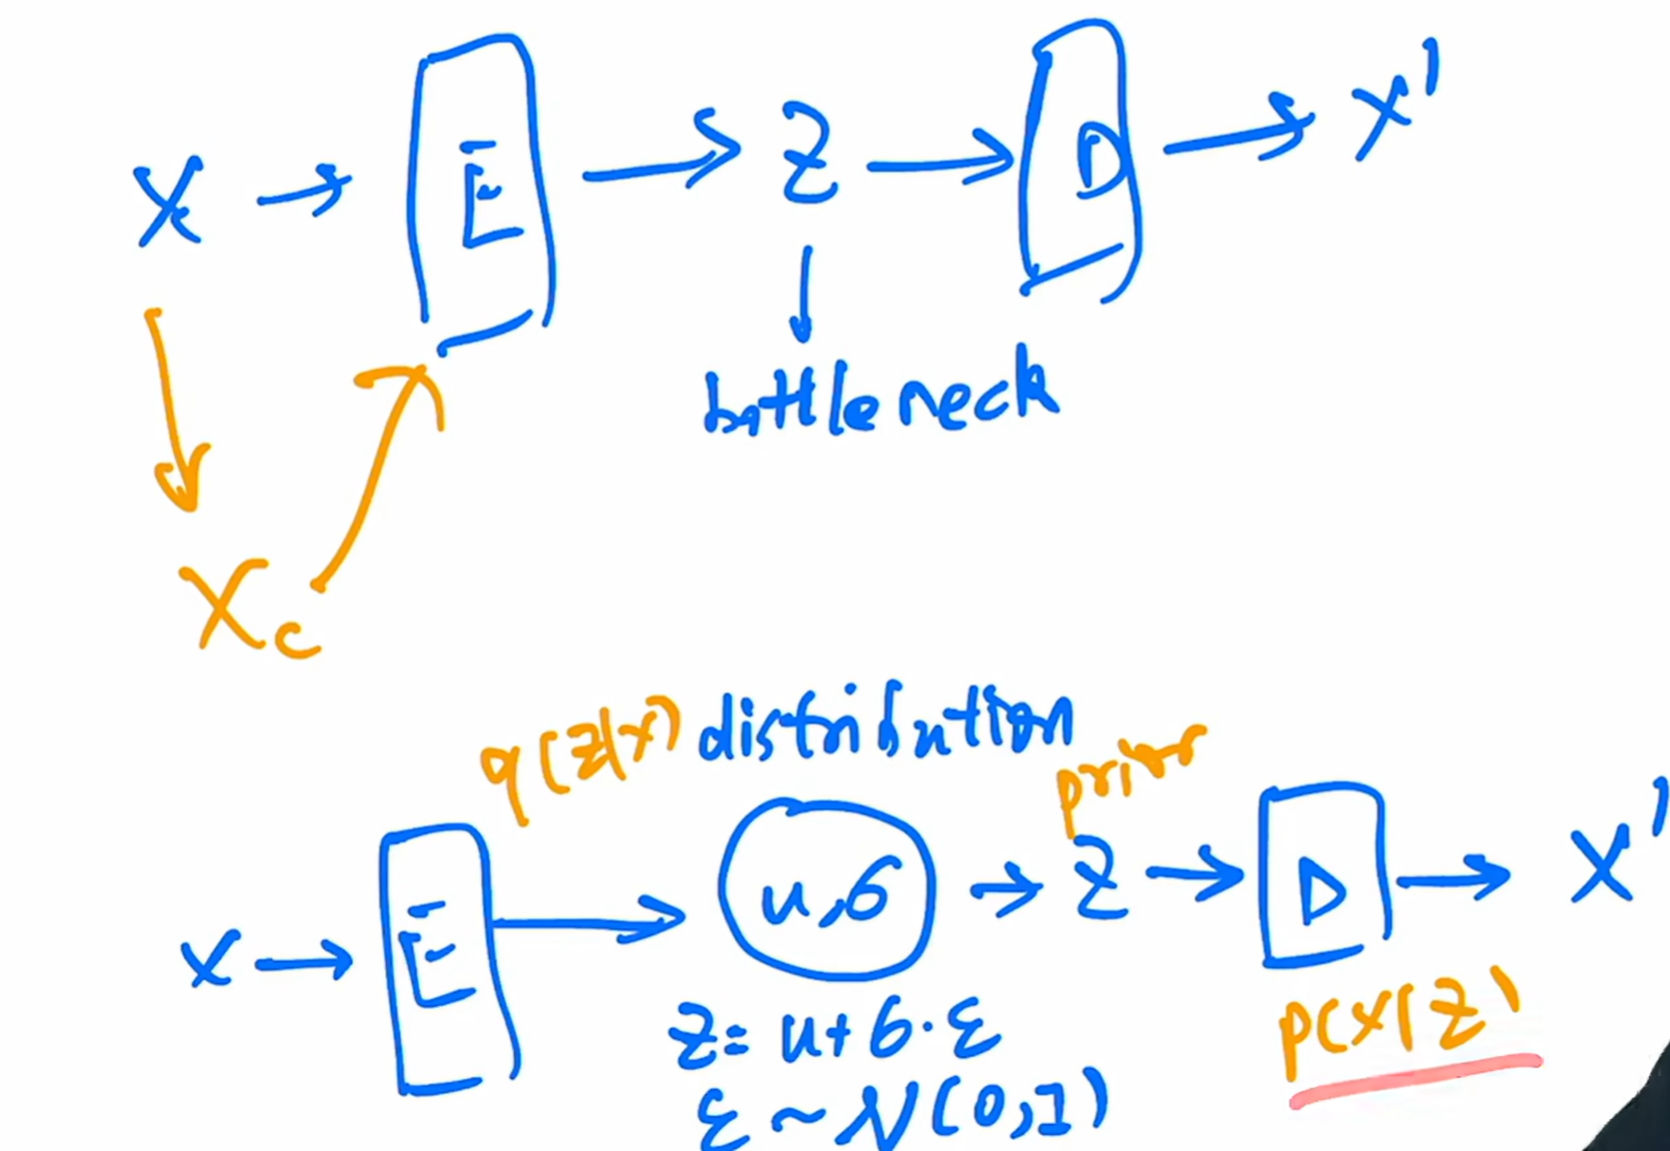 X → E → Z → D → X'
bottleneck
Xc
q(z|x) distribution
prior
x → E → u,σ → z → D → X'
z = u + σ · ε
p(x|z)
ε ~ N(0,I)